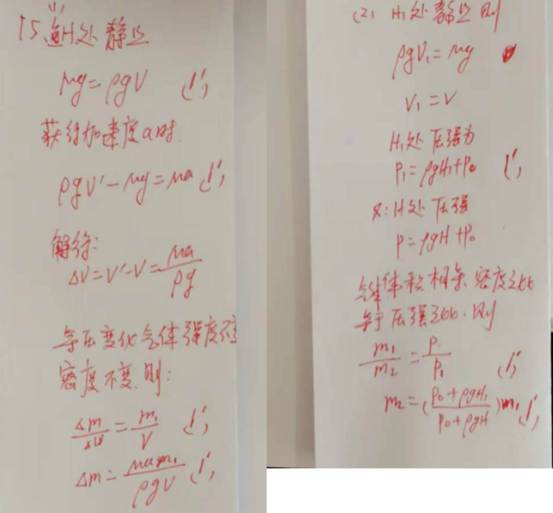 15. (1) H处静止
Mg=ρgV (1')
获得加速度a时.
ρgV'-Mg=Ma (1')
解得:
ΔV=V'-V=Ma/ρg
等压变化气体强度不
密度不变.则:
Δm/ΔV=m₁/V (1')
Δm=Mam₁/ρgV (1')
(2) H₁处静止则
ρgV₁=Mg
V₁=V
H₁处压强为
P₁=ρgH₁+P₀ (1')
又:H处压强
P=ρgH+P₀
气体体积相等密度之比
等于压强之比.则
m₁/m₂=P/P₁ (1')
m₂=(P₀+ρgH₁/P₀+ρgH)m₁ (1')